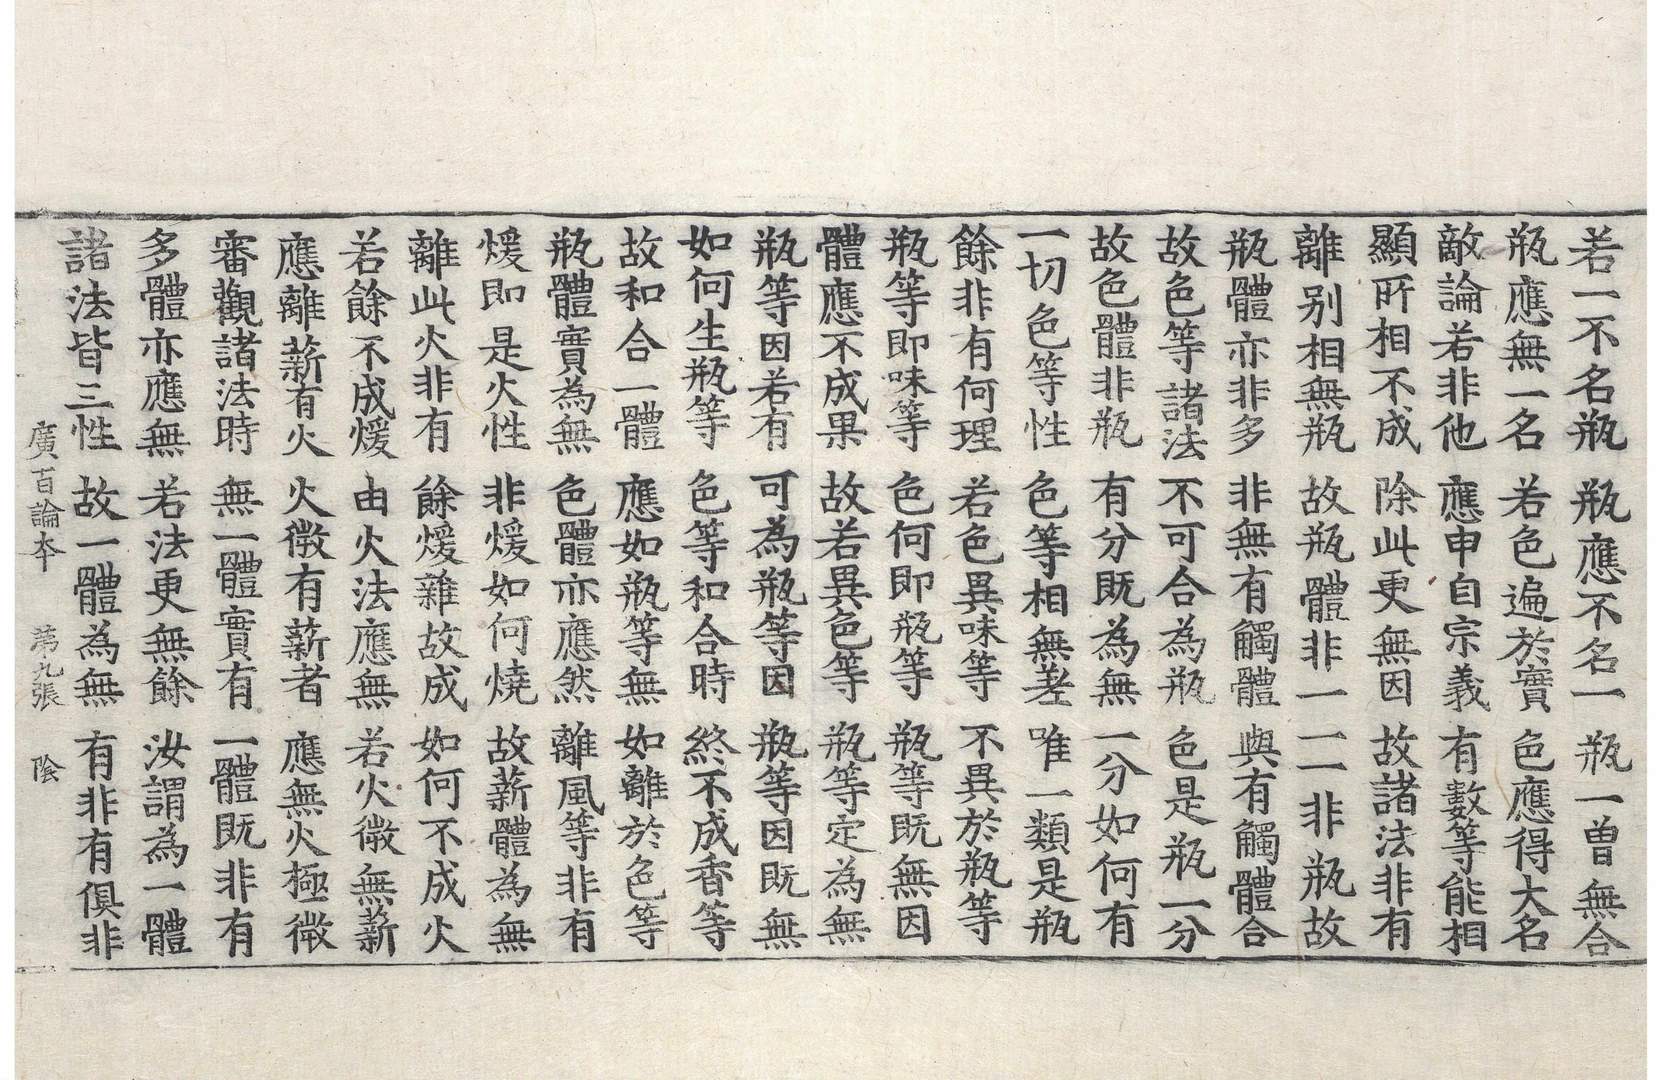 若一不名瓶 瓶應不名一 瓶一曾無合
瓶應無一名 若色遍於實 色應得大名
敵論若非他 應申自宗義 有數等能相
顯所相不成 除此更無因 故諸法非有
離别相無瓶 故瓶體非一 一一非瓶故
瓶體亦非多 非無有觸體 與有觸體合
故色等諸法 不可合為瓶 色是瓶一分
故色體非瓶 有分既為無 一分如何有
一切色等性 色等相無差 唯一類是瓶
餘非有何理 若色異味等 不異於瓶等
瓶等即味等 色何即瓶等 瓶等既無因
體應不成果 故若異色等 瓶等定為無
瓶等因若有 可為瓶等因 瓶等因既無
如何生瓶等 色等和合時 終不成香等
故和合一體 應如瓶等無 如離於色等
瓶體實為無 色體亦應然 離風等非有
煖即是火性 非煖如何燒 故薪體為無
離此火非有 餘煖雜故成 如何不成火
若餘不成煖 由火法應無 若火微無薪
應離薪有火 火微有薪者 應無火極微
審觀諸法時 無一體實有 一體既非有
多體亦應無 若法更無餘 汝謂為一體
諸法皆三性 故一體為無 有非有俱非
廣百論本 第九張 陰